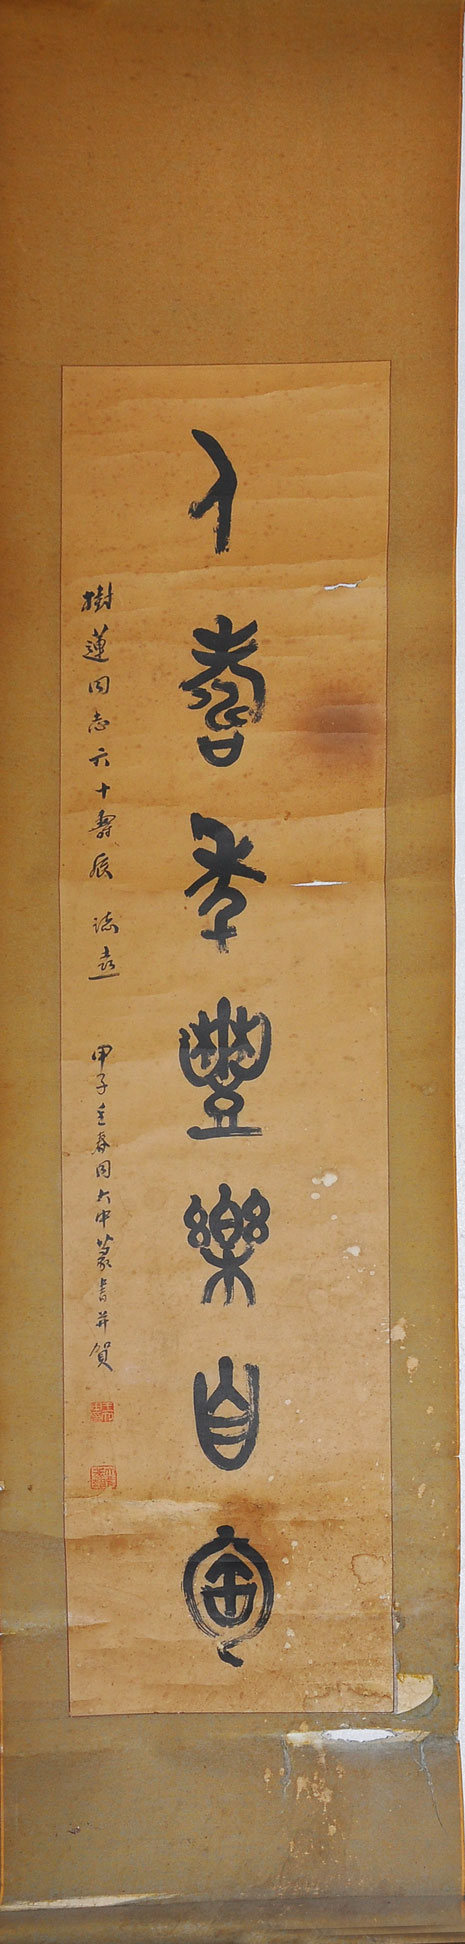 人壽年豐樂自匋
樹蓮同志六十壽辰 誌喜 甲子春周中篆書并賀